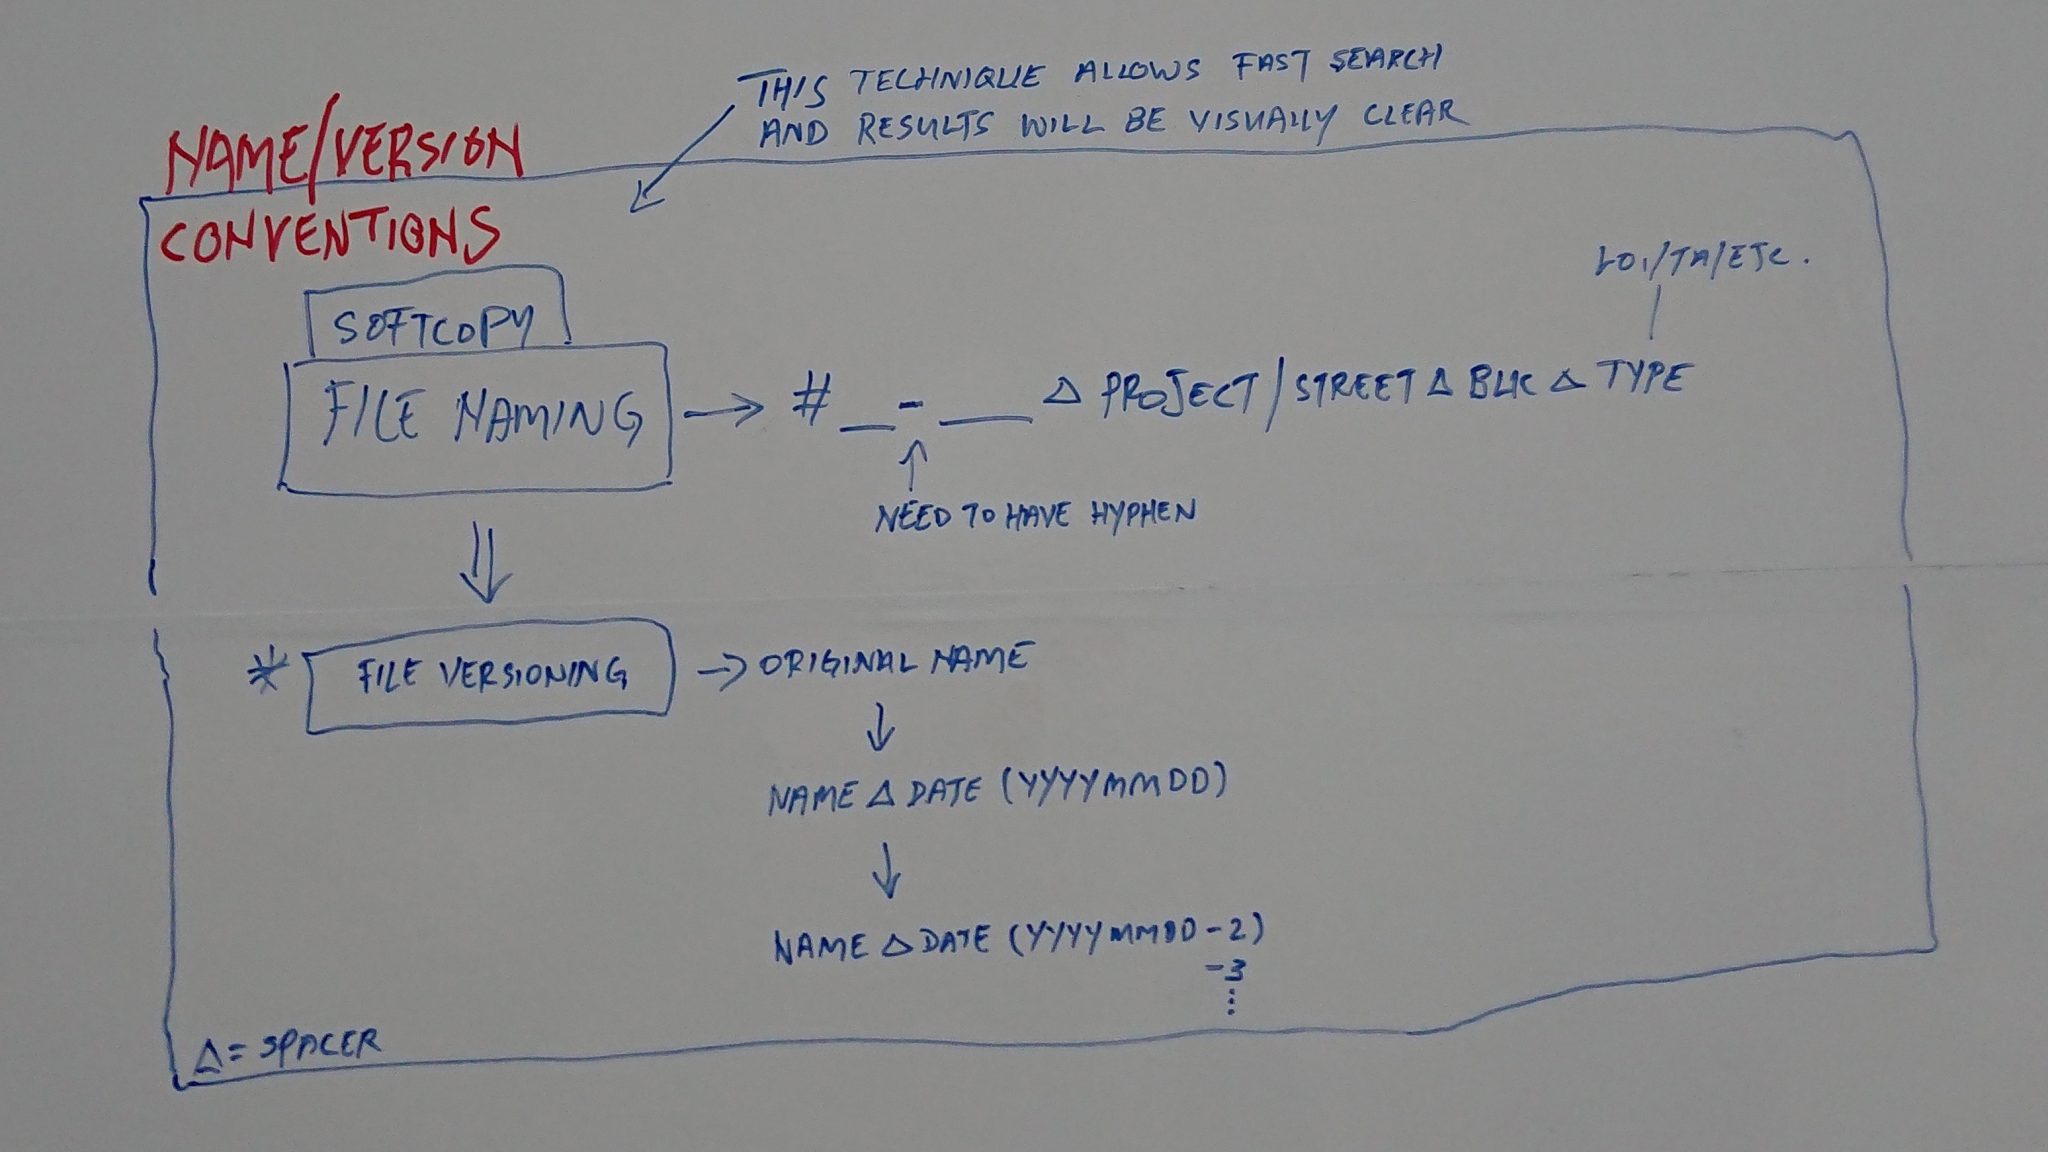 THIS TECHNIQUE ALLOWS FAST SEARCH
AND RESULTS WILL BE VISUALLY CLEAR
NAME/VERSION
CONVENTIONS
LOI/TA/ETC.
SOFTCOPY
FILE NAMING → # __ - ___ Δ PROJECT/STREET Δ BLK Δ TYPE
NEED TO HAVE HYPHEN
* FILE VERSIONING → ORIGINAL NAME
NAME Δ DATE (YYYYMMDD)
NAME Δ DATE (YYYYMMDD-2)
-3
⋮
Δ = SPACER